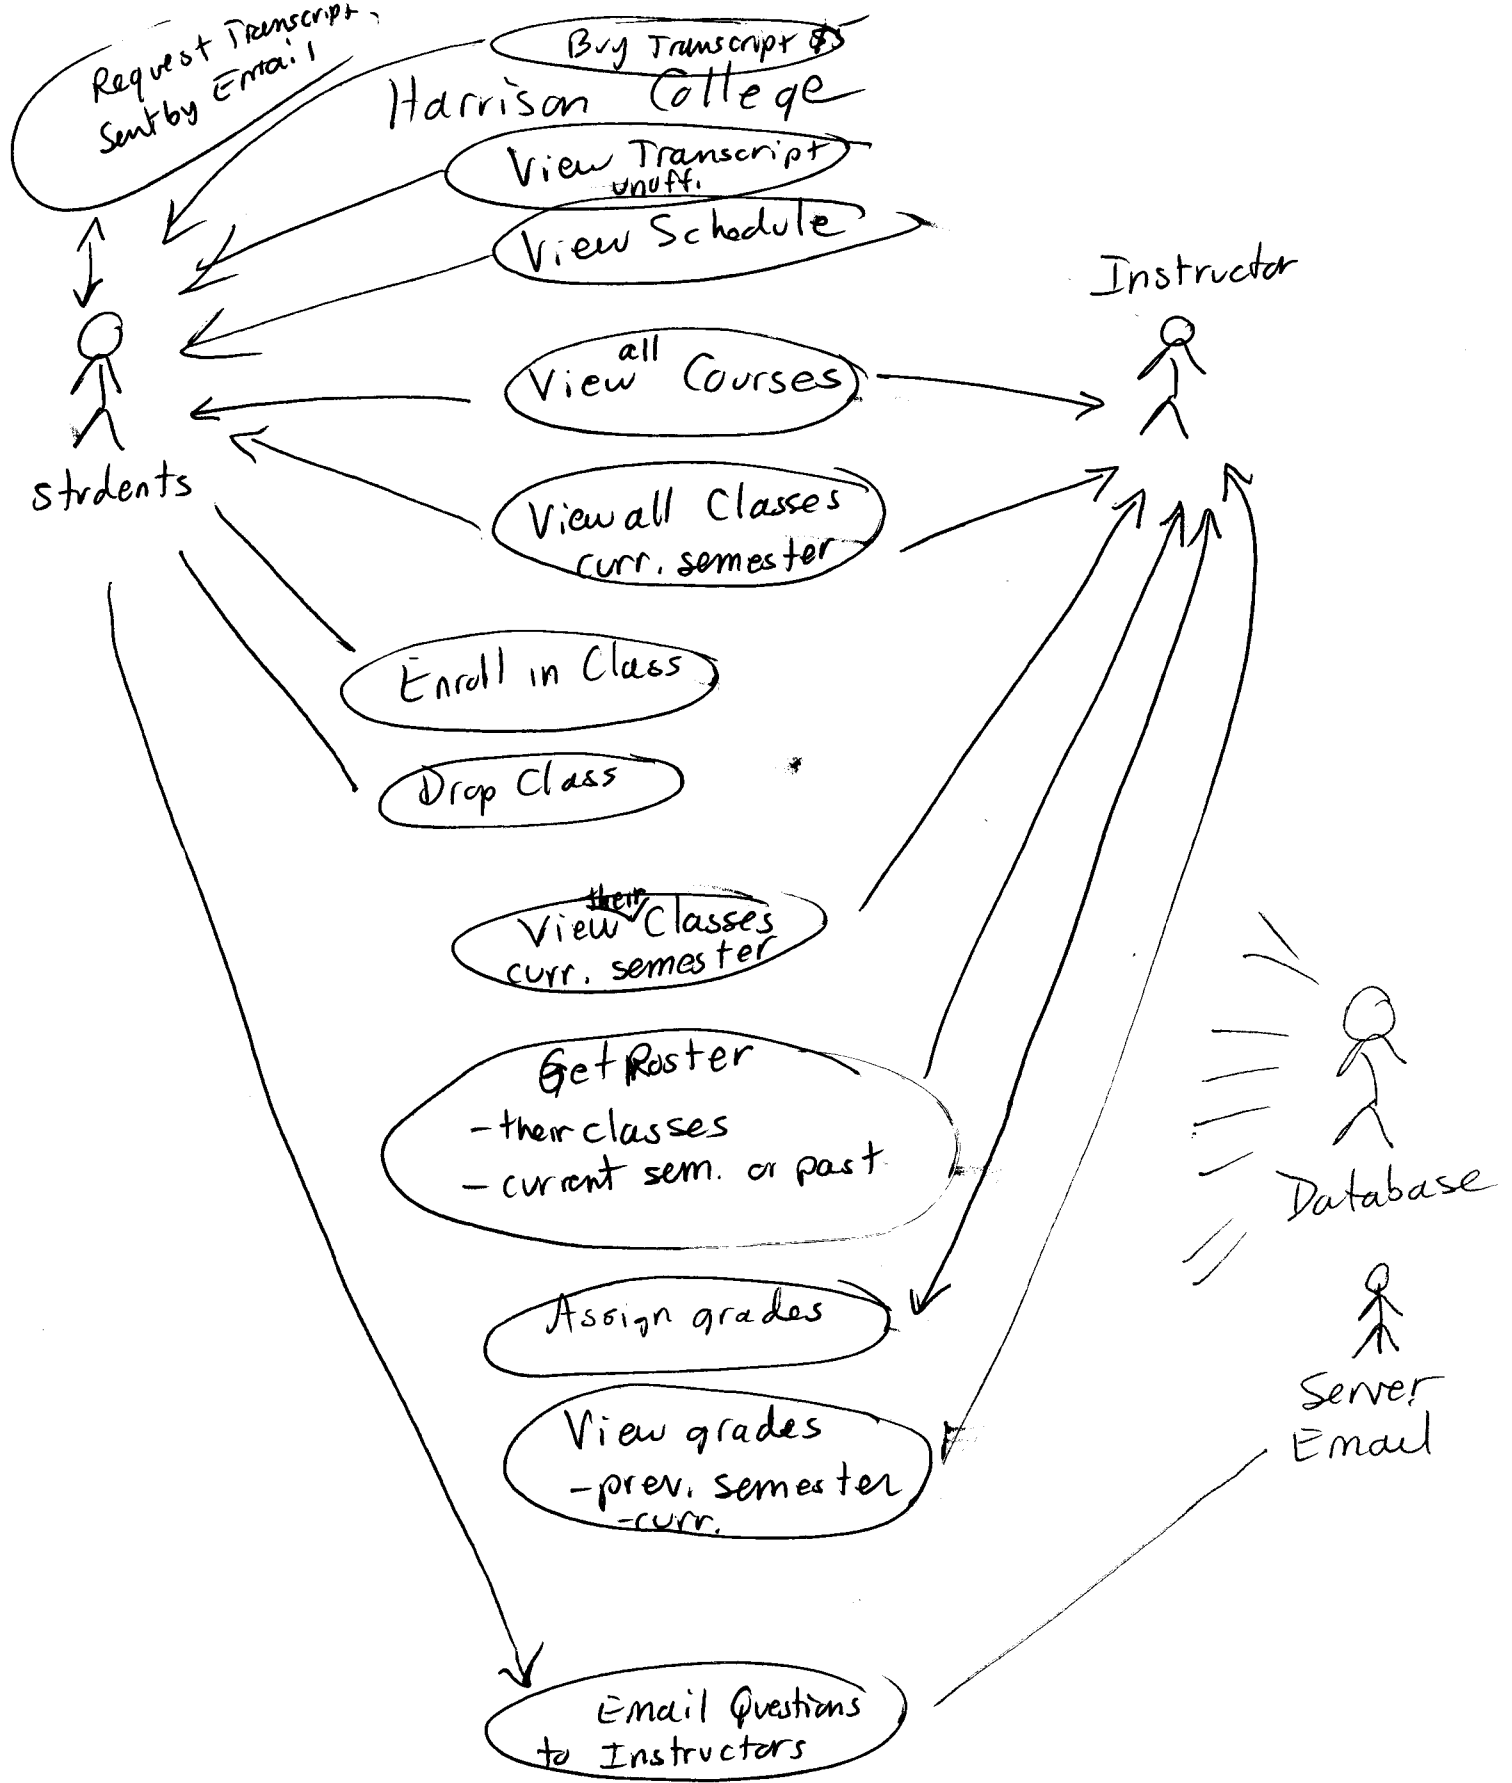 Request Transcript,
Sent by Email
Buy Transcript $
Harrison College
View Transcript
unoff.
View Schedule
Instructor
View all Courses
Students
View all Classes
curr. semester
Enroll in Class
Drop Class
View their Classes
curr. semester
Get Roster
- their classes
- current sem. or past
Database
Assign grades
Server
Email
View grades
- prev. semester
- curr.
Email Questions
to Instructors